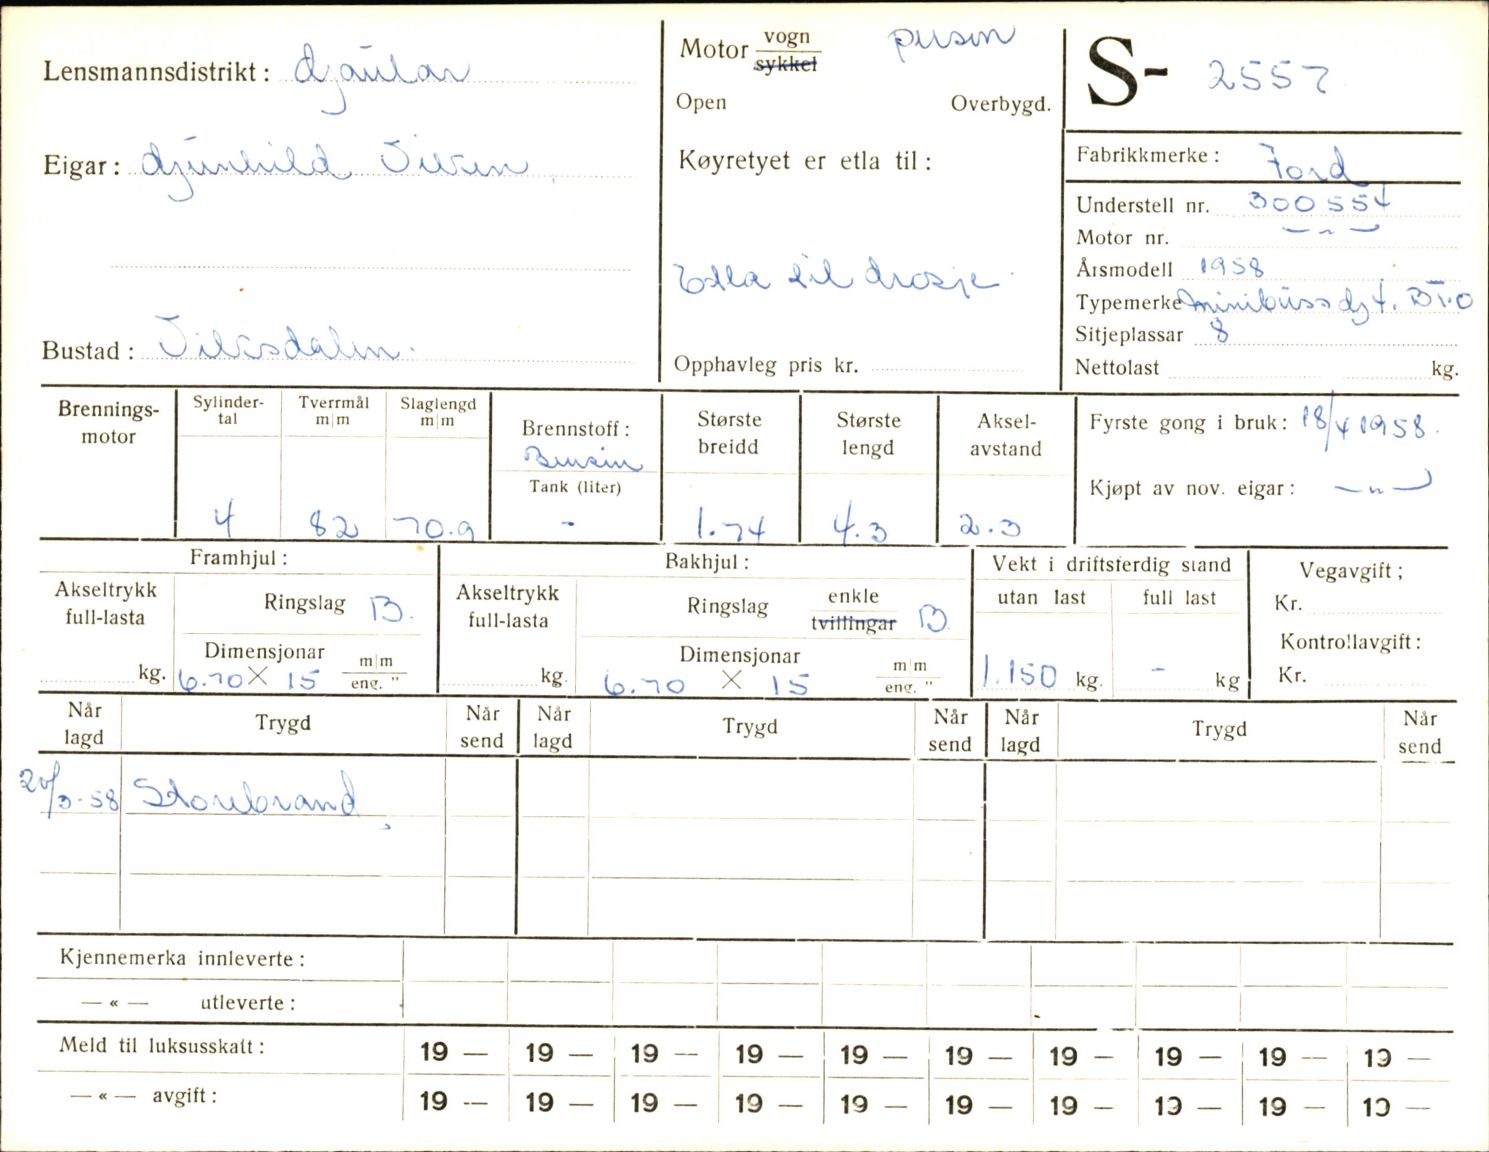 Lensmannsdistrikt: Gaular
Eigar: Gunhild
Bustad:
Motor vogn person
sykkel
Open Overbygd.
Køyretyet er etla til:
Etla til drosje
Opphavleg pris kr.
S- 2557
Fabrikkmerke: Ford
Understell nr. 300554
Motor nr. — " —
Årsmodell 1958
Typemerke minibuss
Sitjeplassar 8
Nettolast kg.
Brennings-
motor
Sylinder-
tal
4
Tverrmål
m|m
82
Slaglengd
m|m
70.9
Brennstoff:
Bensin
Tank (liter)
-
Største
breidd
1.74
Største
lengd
4.3
Aksel-
avstand
2.3
Fyrste gong i bruk: 18/4 1958.
Kjøpt av nov. eigar: — " —
Framhjul:
Akseltrykk
full-lasta
kg.
Ringslag B.
Dimensjonar
6.70 X 15 m|m
eng. "
Bakhjul:
Akseltrykk
full-lasta
kg.
Ringslag enkle
tvillingar B.
Dimensjonar
6.70 X 15 m|m
eng. "
Vekt i driftsferdig stand
utan last full last
1.150 kg. - kg
Vegavgift;
Kr.
Kontrollavgift:
Kr.
Når
lagd Trygd Når
send Når
lagd Trygd Når
send Når
lagd Trygd Når
send
/3-58 Storebrand
Kjennemerka innleverte:
— « — utleverte:
Meld til luksusskatt: 19 — 19 — 19 — 19 — 19 — 19 — 19 — 19 — 19 — 19 —
— « — avgift: 19 — 19 — 19 — 19 — 19 — 19 — 19 — 19 — 19 — 19 —